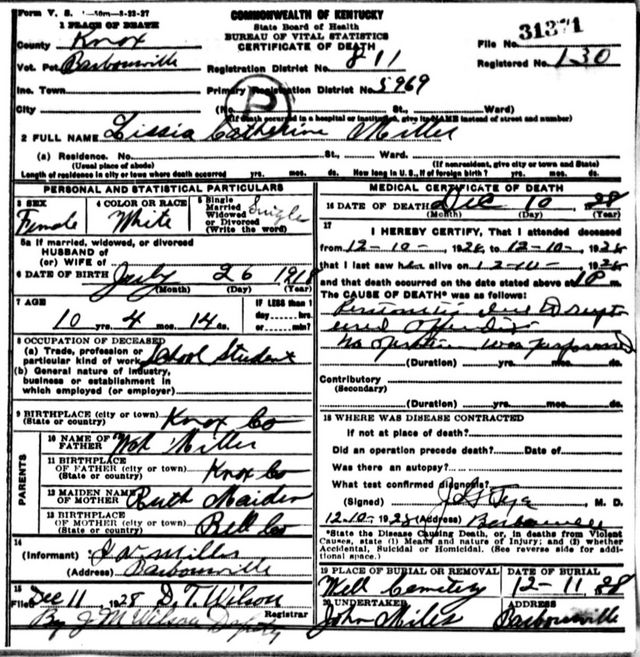 Form V. S.
COMMONWEALTH OF KENTUCKY
State Board of Health
BUREAU OF VITAL STATISTICS
CERTIFICATE OF DEATH
1 PLACE OF DEATH
County Knox
Vot. Pct. Barbourville
Inc. Town
City
File No. 31371
Registered No. 130
Registration District No. 811
Primary Registration District No. 5969
(No. St., Ward)
(If death occurred in a hospital or institution, give its NAME instead of street and number)
P
2 FULL NAME Lissia Catherine Miller
(a) Residence. No. St., Ward.
(Usual place of abode) (If nonresident, give city or town and State)
Length of residence in city or town where death occurred yrs. mos. ds. How long in U.S., if of foreign birth? yrs. mos. ds.
PERSONAL AND STATISTICAL PARTICULARS
3 SEX
Female
4 COLOR OR RACE
White
5 Single
Married
Widowed
or Divorced
(Write the word)
Single
5a If married, widowed, or divorced
HUSBAND of
(or) WIFE of
6 DATE OF BIRTH July 26 1918
(Month) (Day) (Year)
7 AGE
10 yrs. 4 mos. 14 ds.
IF LESS than 1
day hrs.
or min.?
8 OCCUPATION OF DECEASED
(a) Trade, profession or
particular kind of work School Student
(b) General nature of industry,
business or establishment in
which employed (or employer)
9 BIRTHPLACE (city or town)
(State or country) Knox Co
PARENTS
10 NAME OF
FATHER Miller
11 BIRTHPLACE
OF FATHER (city or town)
(State or country) Knox Co
12 MAIDEN NAME
OF MOTHER Ruth Maiden
13 BIRTHPLACE
OF MOTHER (city or town)
(State or country) Bell Co
14
(Informant) Miller
(Address) Barbourville
15
Filed Dec 11 1928 D. T. Wilson
Registrar
By J M Wilson Deputy
MEDICAL CERTIFICATE OF DEATH
16 DATE OF DEATH Dec 10 28
(Month) (Day) (Year)
17
I HEREBY CERTIFY, That I attended deceased
from 12-10- 1928, to 12-10- 1928
that I last saw her alive on 12-10- 1928
and that death occurred on the date stated above at m.
The CAUSE OF DEATH* was as follows:
due to rupt
ured
No operation was performed
(Duration) yrs. mos. ds.
Contributory
(Secondary)
(Duration) yrs. mos. ds.
18 WHERE WAS DISEASE CONTRACTED
If not at place of death?
Did an operation precede death? Date of
Was there an autopsy?
What test confirmed diagnosis?
(Signed) M. D.
12-10- 1928 (Address) Barbourville
*State the Disease Causing Death, or, in deaths from Violent
Causes, state (1) Means and nature of Injury; and (2) whether
Accidental, Suicidal or Homicidal. (See reverse side for addi-
tional space.)
19 PLACE OF BURIAL OR REMOVAL
Cemetery
DATE OF BURIAL
12-11 28
20 UNDERTAKER
John Miles
ADDRESS
Barbourville